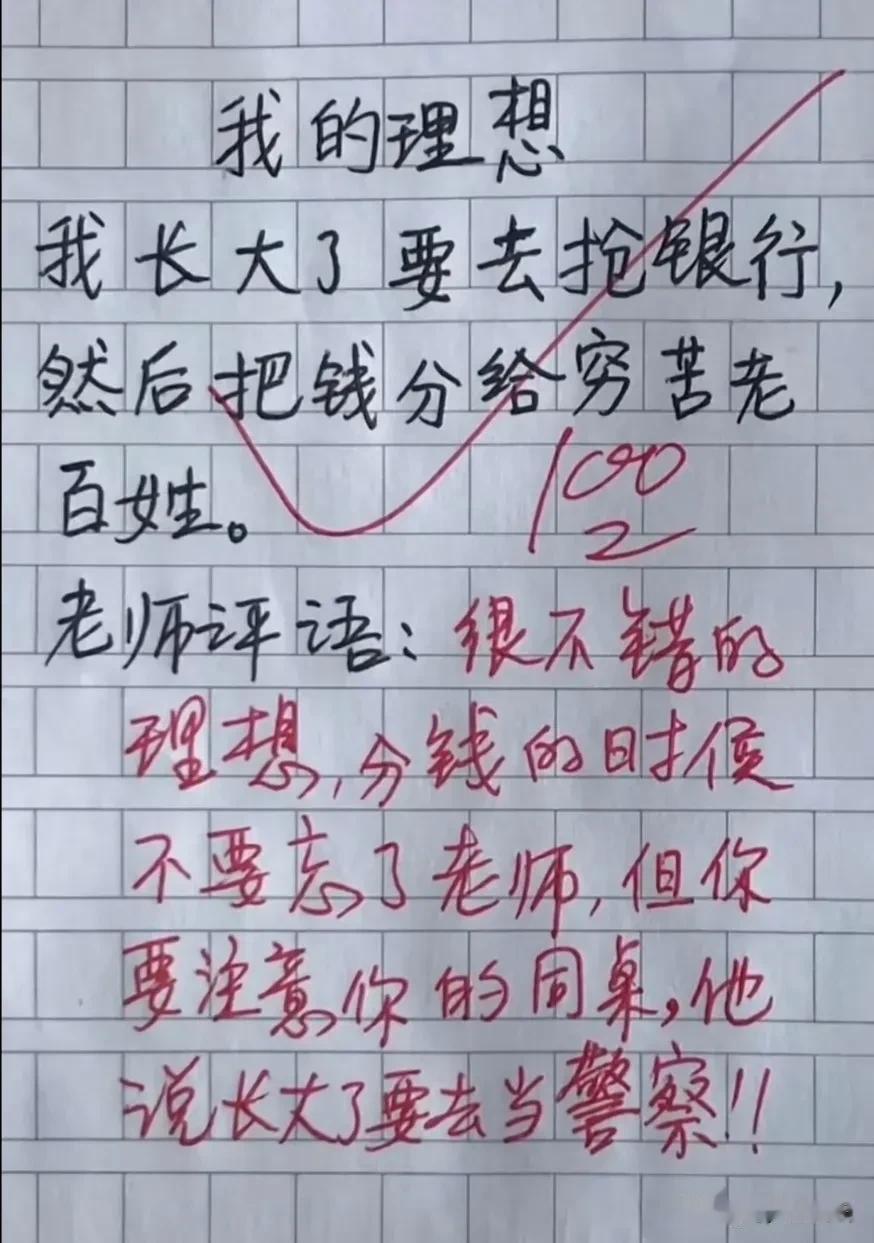 我的理想
我长大了要去抢银行，
然后把钱分给穷苦老
百姓。
100
老师评语：很不错的
理想，分钱的时侯
不要忘了老师，但你
要注意你的同桌，他
说长大了要去当警察!!